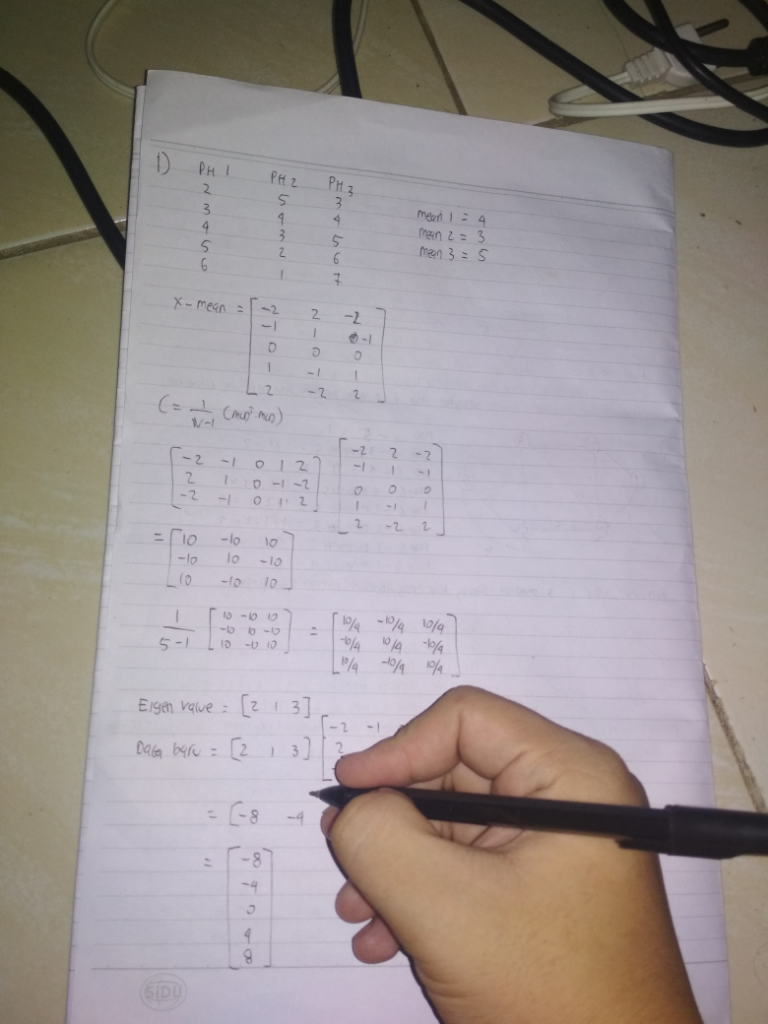 1) PH 1 PH 2 PH 3
2 5 3
3 4 4
4 3 5
5 2 6
6 1 7
mean 1 = 4
mean 2 = 3
mean 3 = 5
x - mean = [-2 2 -2
-1 1 -1
0 0 0
1 -1 1
2 -2 2]
C = 1/N-1
[-2 -1 0 1 2
2 1 0 -1 -2
-2 -1 0 1 2]
[-2 2 -2
-1 1 -1
0 0 0
1 -1 1
2 -2 2]
= [10 -10 10
-10 10 -10
10 -10 10]
1/5-1 [10 -10 10
-10 10 -10
10 -10 10]
= [10/4 -10/4 10/4
-10/4 10/4 -10/4
10/4 -10/4 10/4]
Eigen value = [2 1 3]
Data baru = [2 1 3] [-2 -1
2
= [-8 -4
= [-8
-4
0
4
8]
SIDU